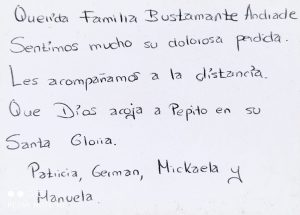 Querida Familia Bustamante Andrade
Sentimos mucho su dolorosa perdida.
Les acompañamos a la distancia.
Que Dios acoja a Pepito en su
Santa Gloria.
Patricia, German, Mickaela y
Manuela.